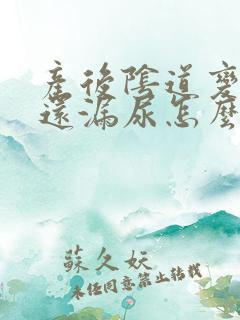 產後陰道變
還漏尿怎麼
蘇久妘
未經同意禁止轉載